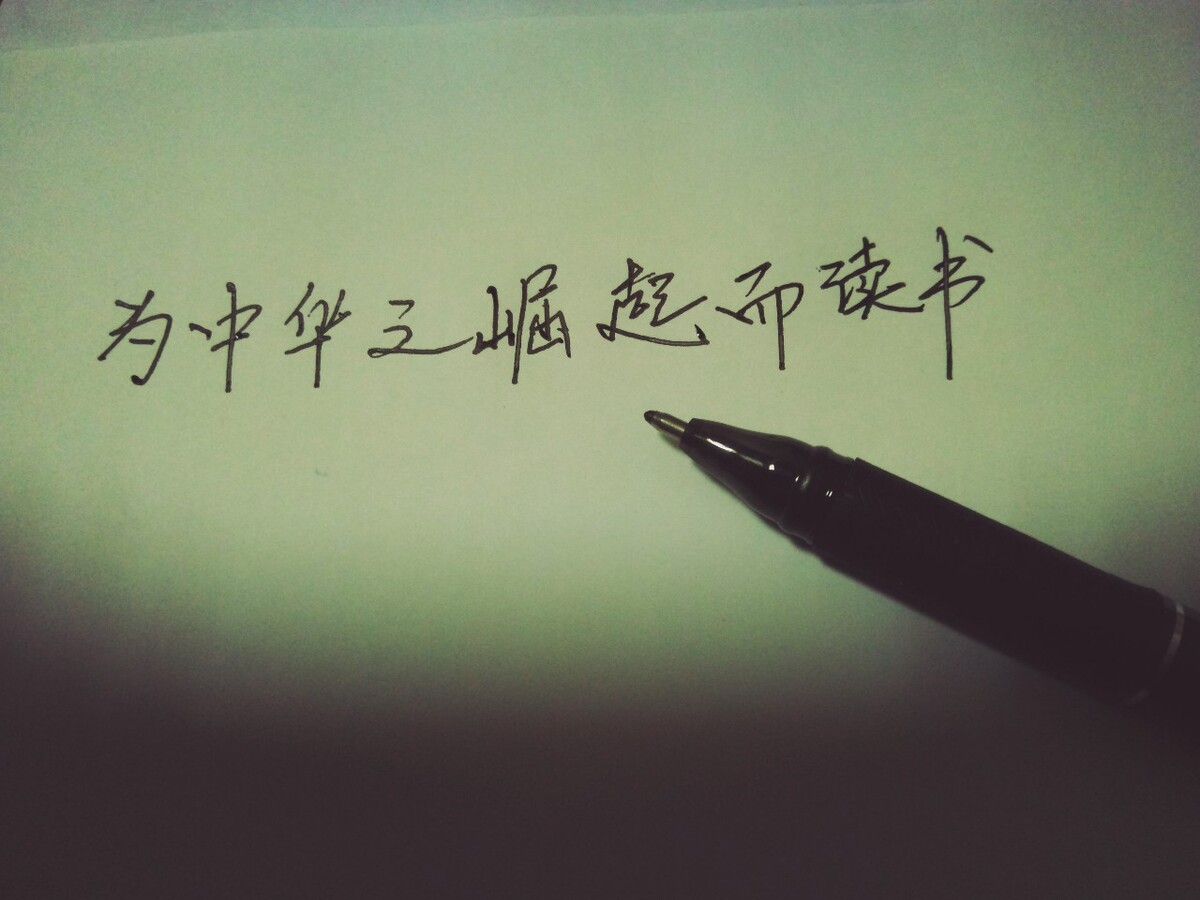 为中华之崛起而读书